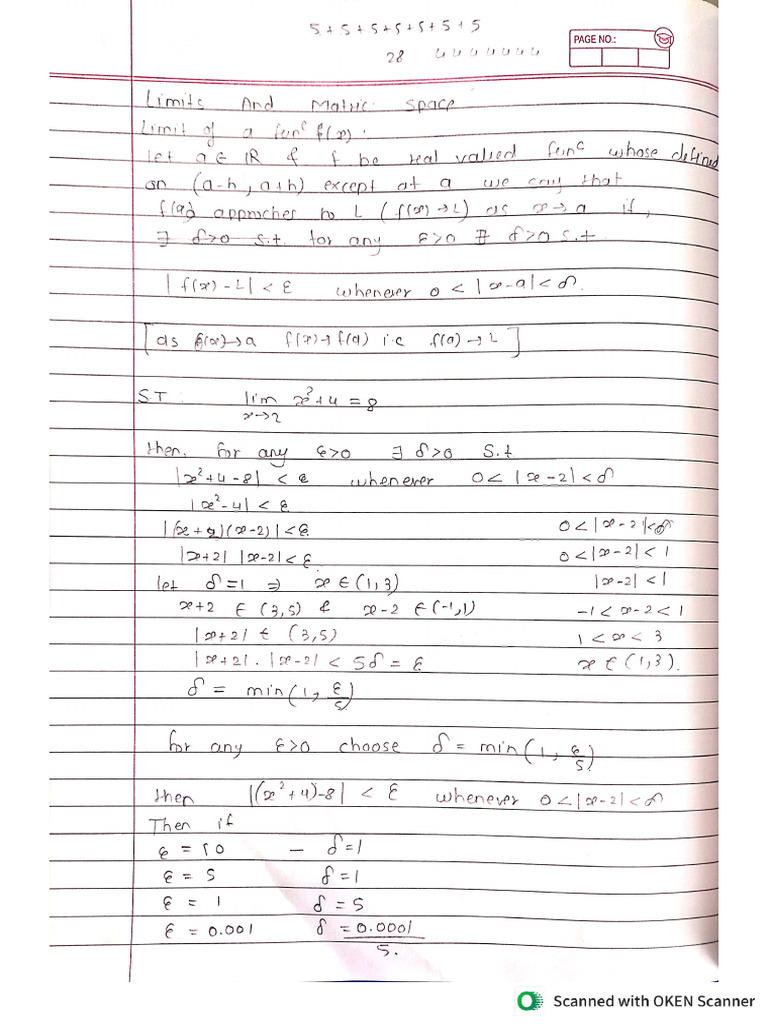 5+5+5+5+5+5+5
PAGE NO.:
28 4 4 4 4 4 4 4
Limits And Matric space
Limit of a funᶜ f(x).
let a ∈ ℝ & f be real valued funᶜ whose defined
on (a-h, a+h) except at a we say that
f(a) approches to L (f(x)→L) as x→a if,
∃ δ>0 s.t. for any ε>0 ∃ δ>0 s.t
|f(x)-L| < ε whenever 0 < |x-a| < δ.
[as f(x)→a f(x)→f(a) i.e f(a)→L]
S.T. lim x²+4 = 8
x→2
then. for any ε>0 ∃ δ>0 S.t
|x²+4-8| < ε whenever 0< |x-2| < δ
|x²-4| < ε
|(x+2)(x-2)| < ε 0<|x-2|<δ
|x+2| |x-2| < ε 0<|x-2|<1
let δ=1 ⇒ x ∈ (1,3) |x-2| < 1
x+2 ∈ (3,5) & x-2 ∈ (-1,1) -1 < x-2 < 1
|x+2| ∈ (3,5) 1 < x < 3
|x+2|.|x-2| < 5δ = ε x ∈ (1,3).
δ = min(1, ε/5)
for any ε>0 choose δ = min(1, ε/5)
then |(x²+4)-8| < ε whenever 0<|x-2|<δ
Then if
ε = 10 - δ=1
ε = 5 δ=1
ε = 1 δ=5
ε = 0.001 δ=0.0001/5.
Scanned with OKEN Scanner